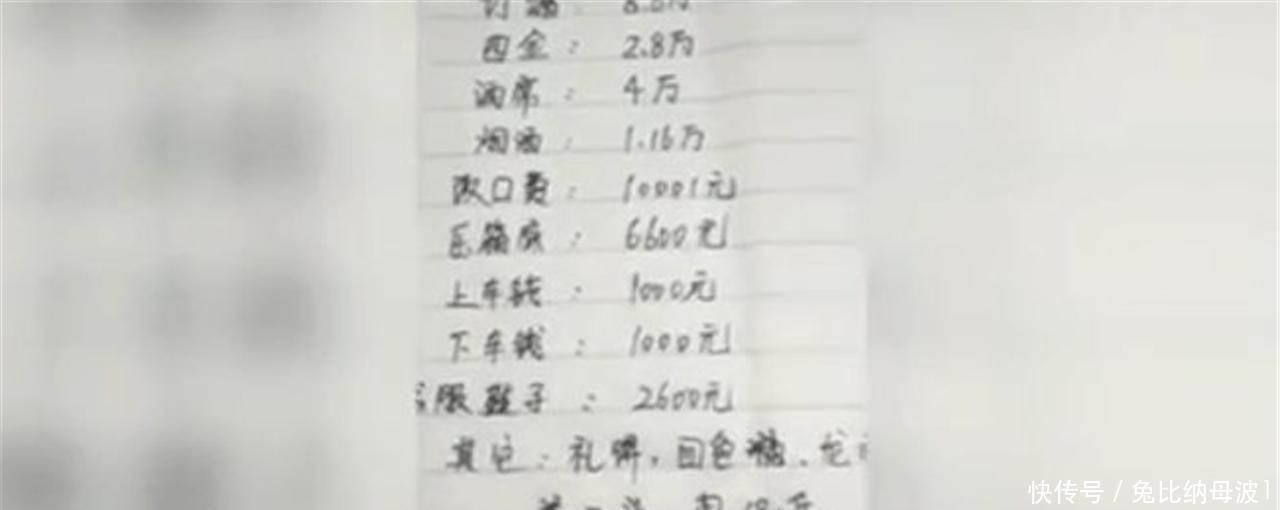 四金： 2.8万
酒席： 4万
烟酒： 1.16万
改口费： 10001元
压箱底： 6600元
上车钱： 1000元
下车钱： 1000元
衣服鞋子： 2600元
其它：礼饼，回色糖、龙
快传号 / 兔比纳母波1